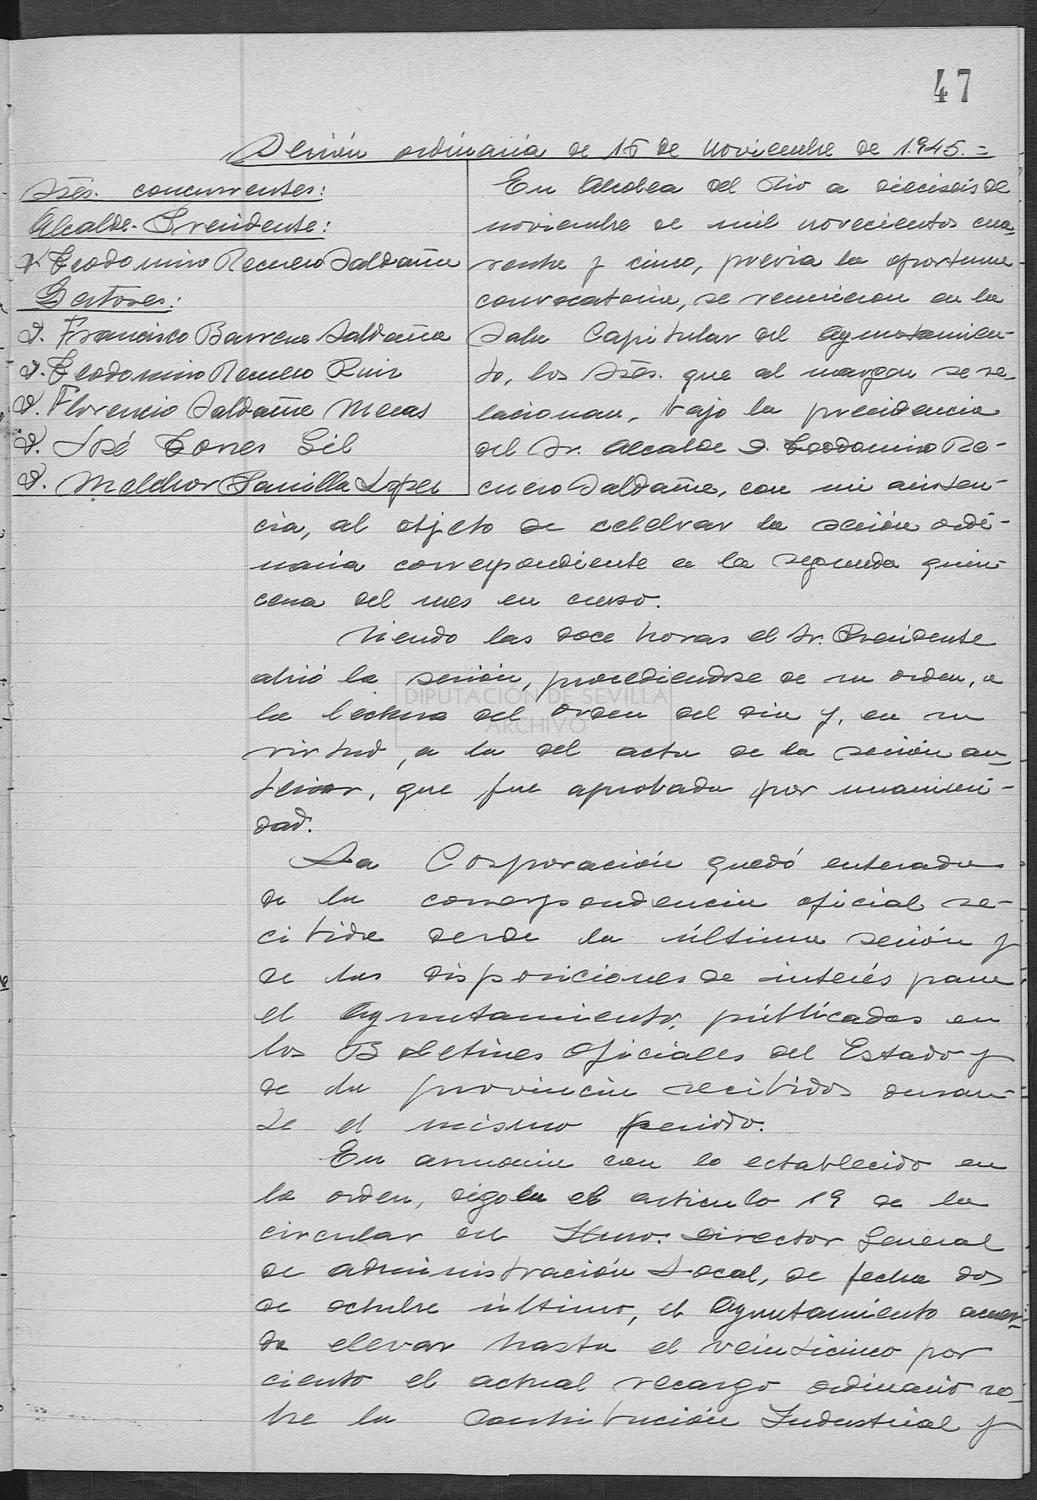 47
Sesión ordinaria de 16 de Noviembre de 1.945.=
Srēs. concurrentes:
Alcalde-Presidente:
D. Teodomiro Recuero Saldaña
Gestores:
D. Francisco Barrera Saldaña
D. Teodomiro Recuero Ruiz
D. Florencio Saldaña Mecas
D. José Torres Gil
D. Melchor Parrilla López
En Alcolea del Rio a dieciseis de
noviembre de mil novecientos cua-
renta y cinco, previa la oportuna
convocatoria, se reunieron en la
Sala Capitular del Ayuntamien-
to, los Srēs. que al margen se re-
lacionan, bajo la presidencia
del Sr. Alcalde D. Teodomiro Re-
cuero Saldaña, con mi asisten-
cia, al objeto de celebrar la sesión ordi-
naria correspondiente a la segunda quin-
cena del mes en curso.
Siendo las doce horas el Sr. Presidente
abrió la sesión, procediendose de su orden, a
la lectura del orden del dia y, en su
virtud, a la del acta de la sesión an-
terior, que fue aprobada por unanimi-
dad.
La Corporación quedó enterada
de la correspondencia oficial re-
cibida desde la última sesión y
de las disposiciones de interés para
el Ayuntamiento, públicadas en
los Boletines Oficiales del Estado y
de la provincia recibidos duran-
te el mismo periodo.
En armonia con lo establecido en
la orden, digo en el articulo 19 de la
circular del Iltmo. Director General
de Administración Local, de fecha dos
de octubre último, el Ayuntamiento acuer-
da elevar hasta el veinticinco por
ciento el actual recargo ordinario so-
bre la Contribución Industrial y
DIPUTACIÓN DE SEVILLA
ARCHIVO